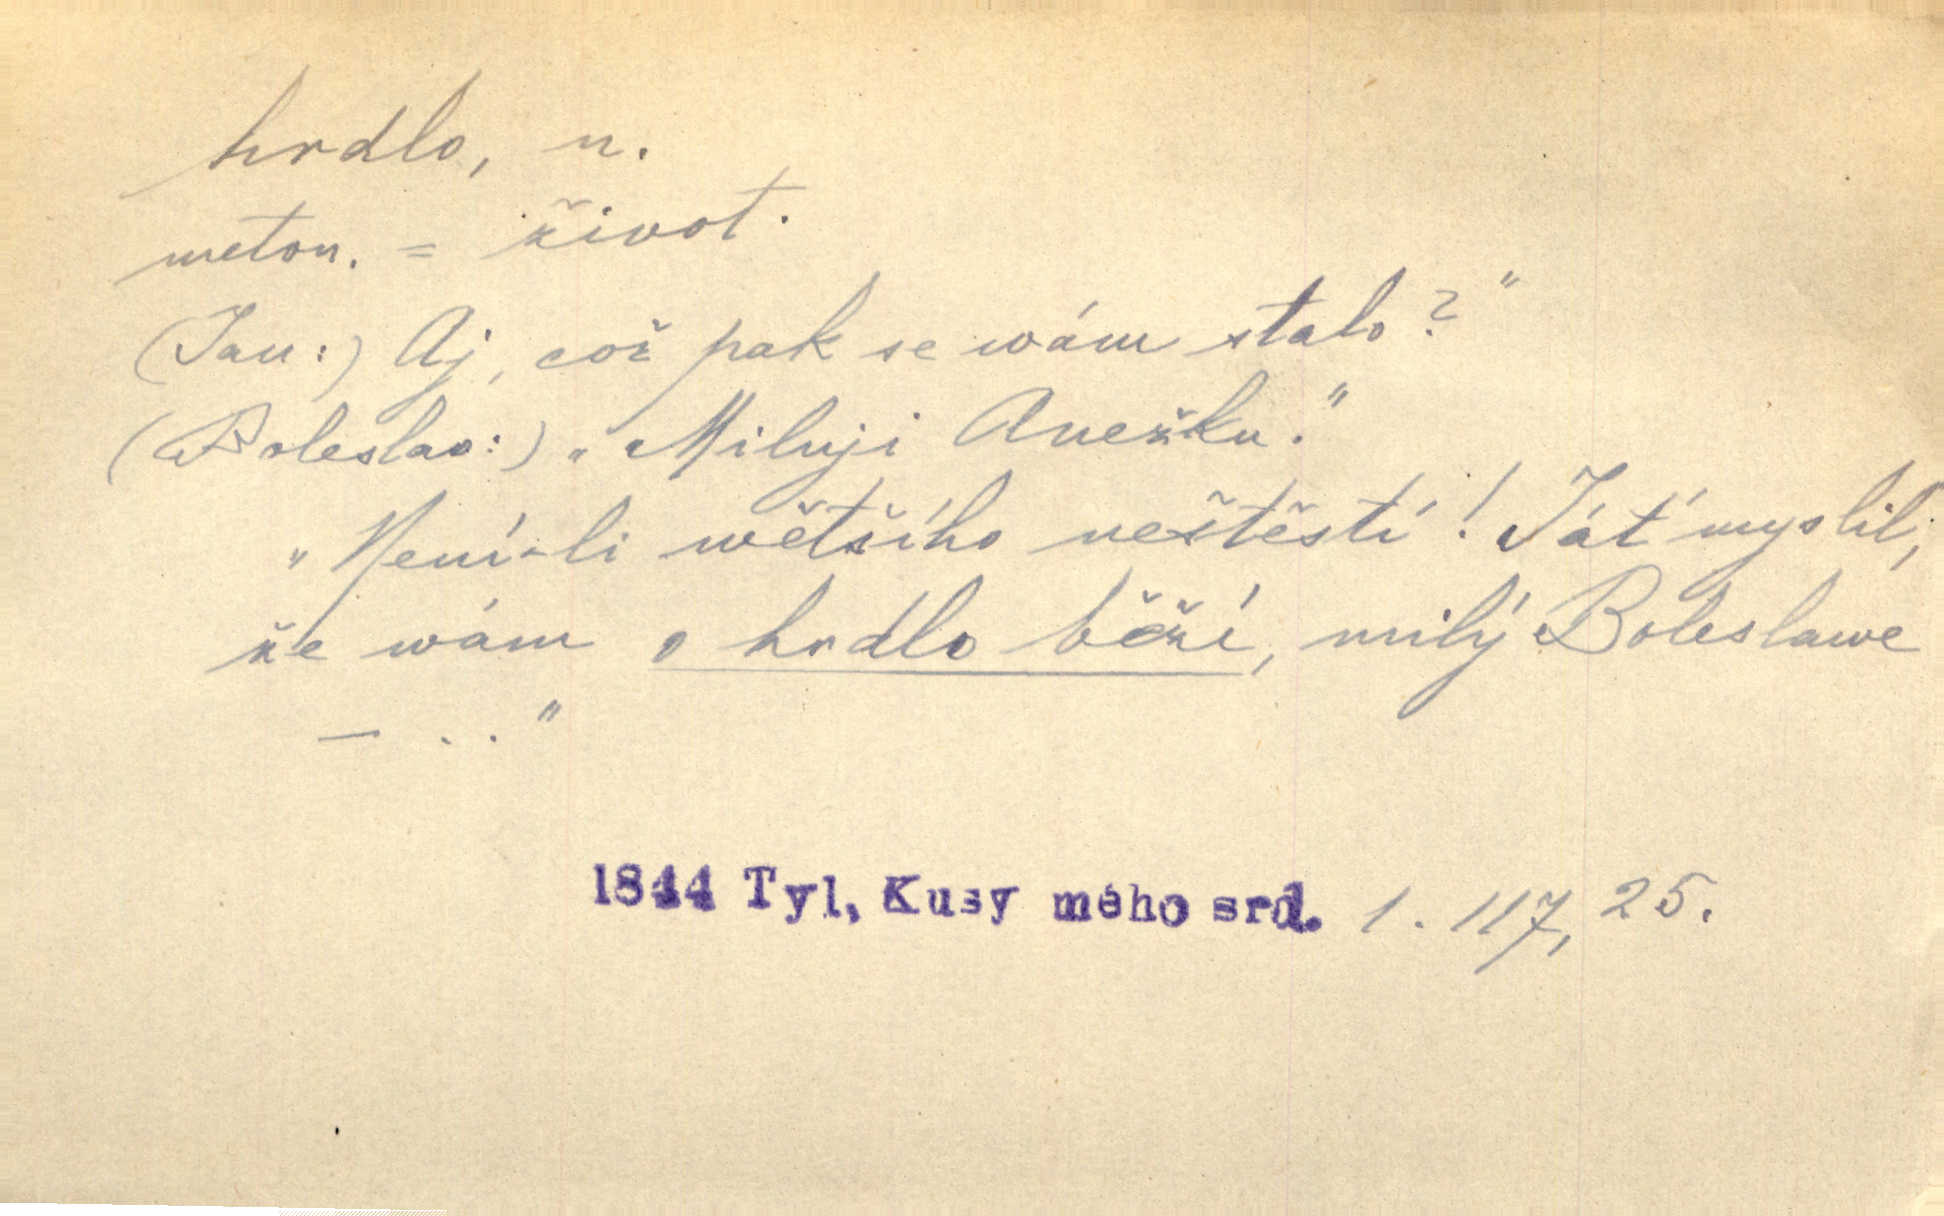 hrdlo, n.
meton. = život.
(Jan:) Aj, což pak se wám stalo?"
(Boleslav:) „Miluji Anežku."
„Není-li wětšího neštěstí! Játʼ myslil,
že wám o hrdlo běží, milý Boleslawe
— . . "
1844 Tyl, Kusy mého srd. 1. 117, 25.